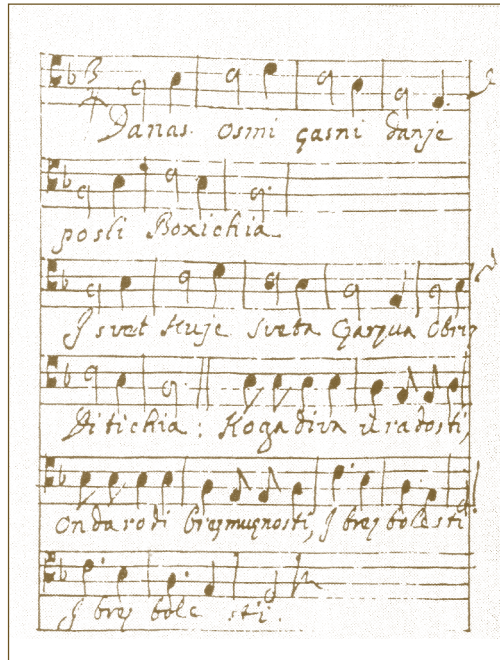 Danas osmi çasni danje
posli Boxichia
I svet stuje sveta Çarqua Obriz
Ditichia: Koga diva ù radosti,
Onda rodi brez muçnosti, I brez bolesti
I brez bole sti.